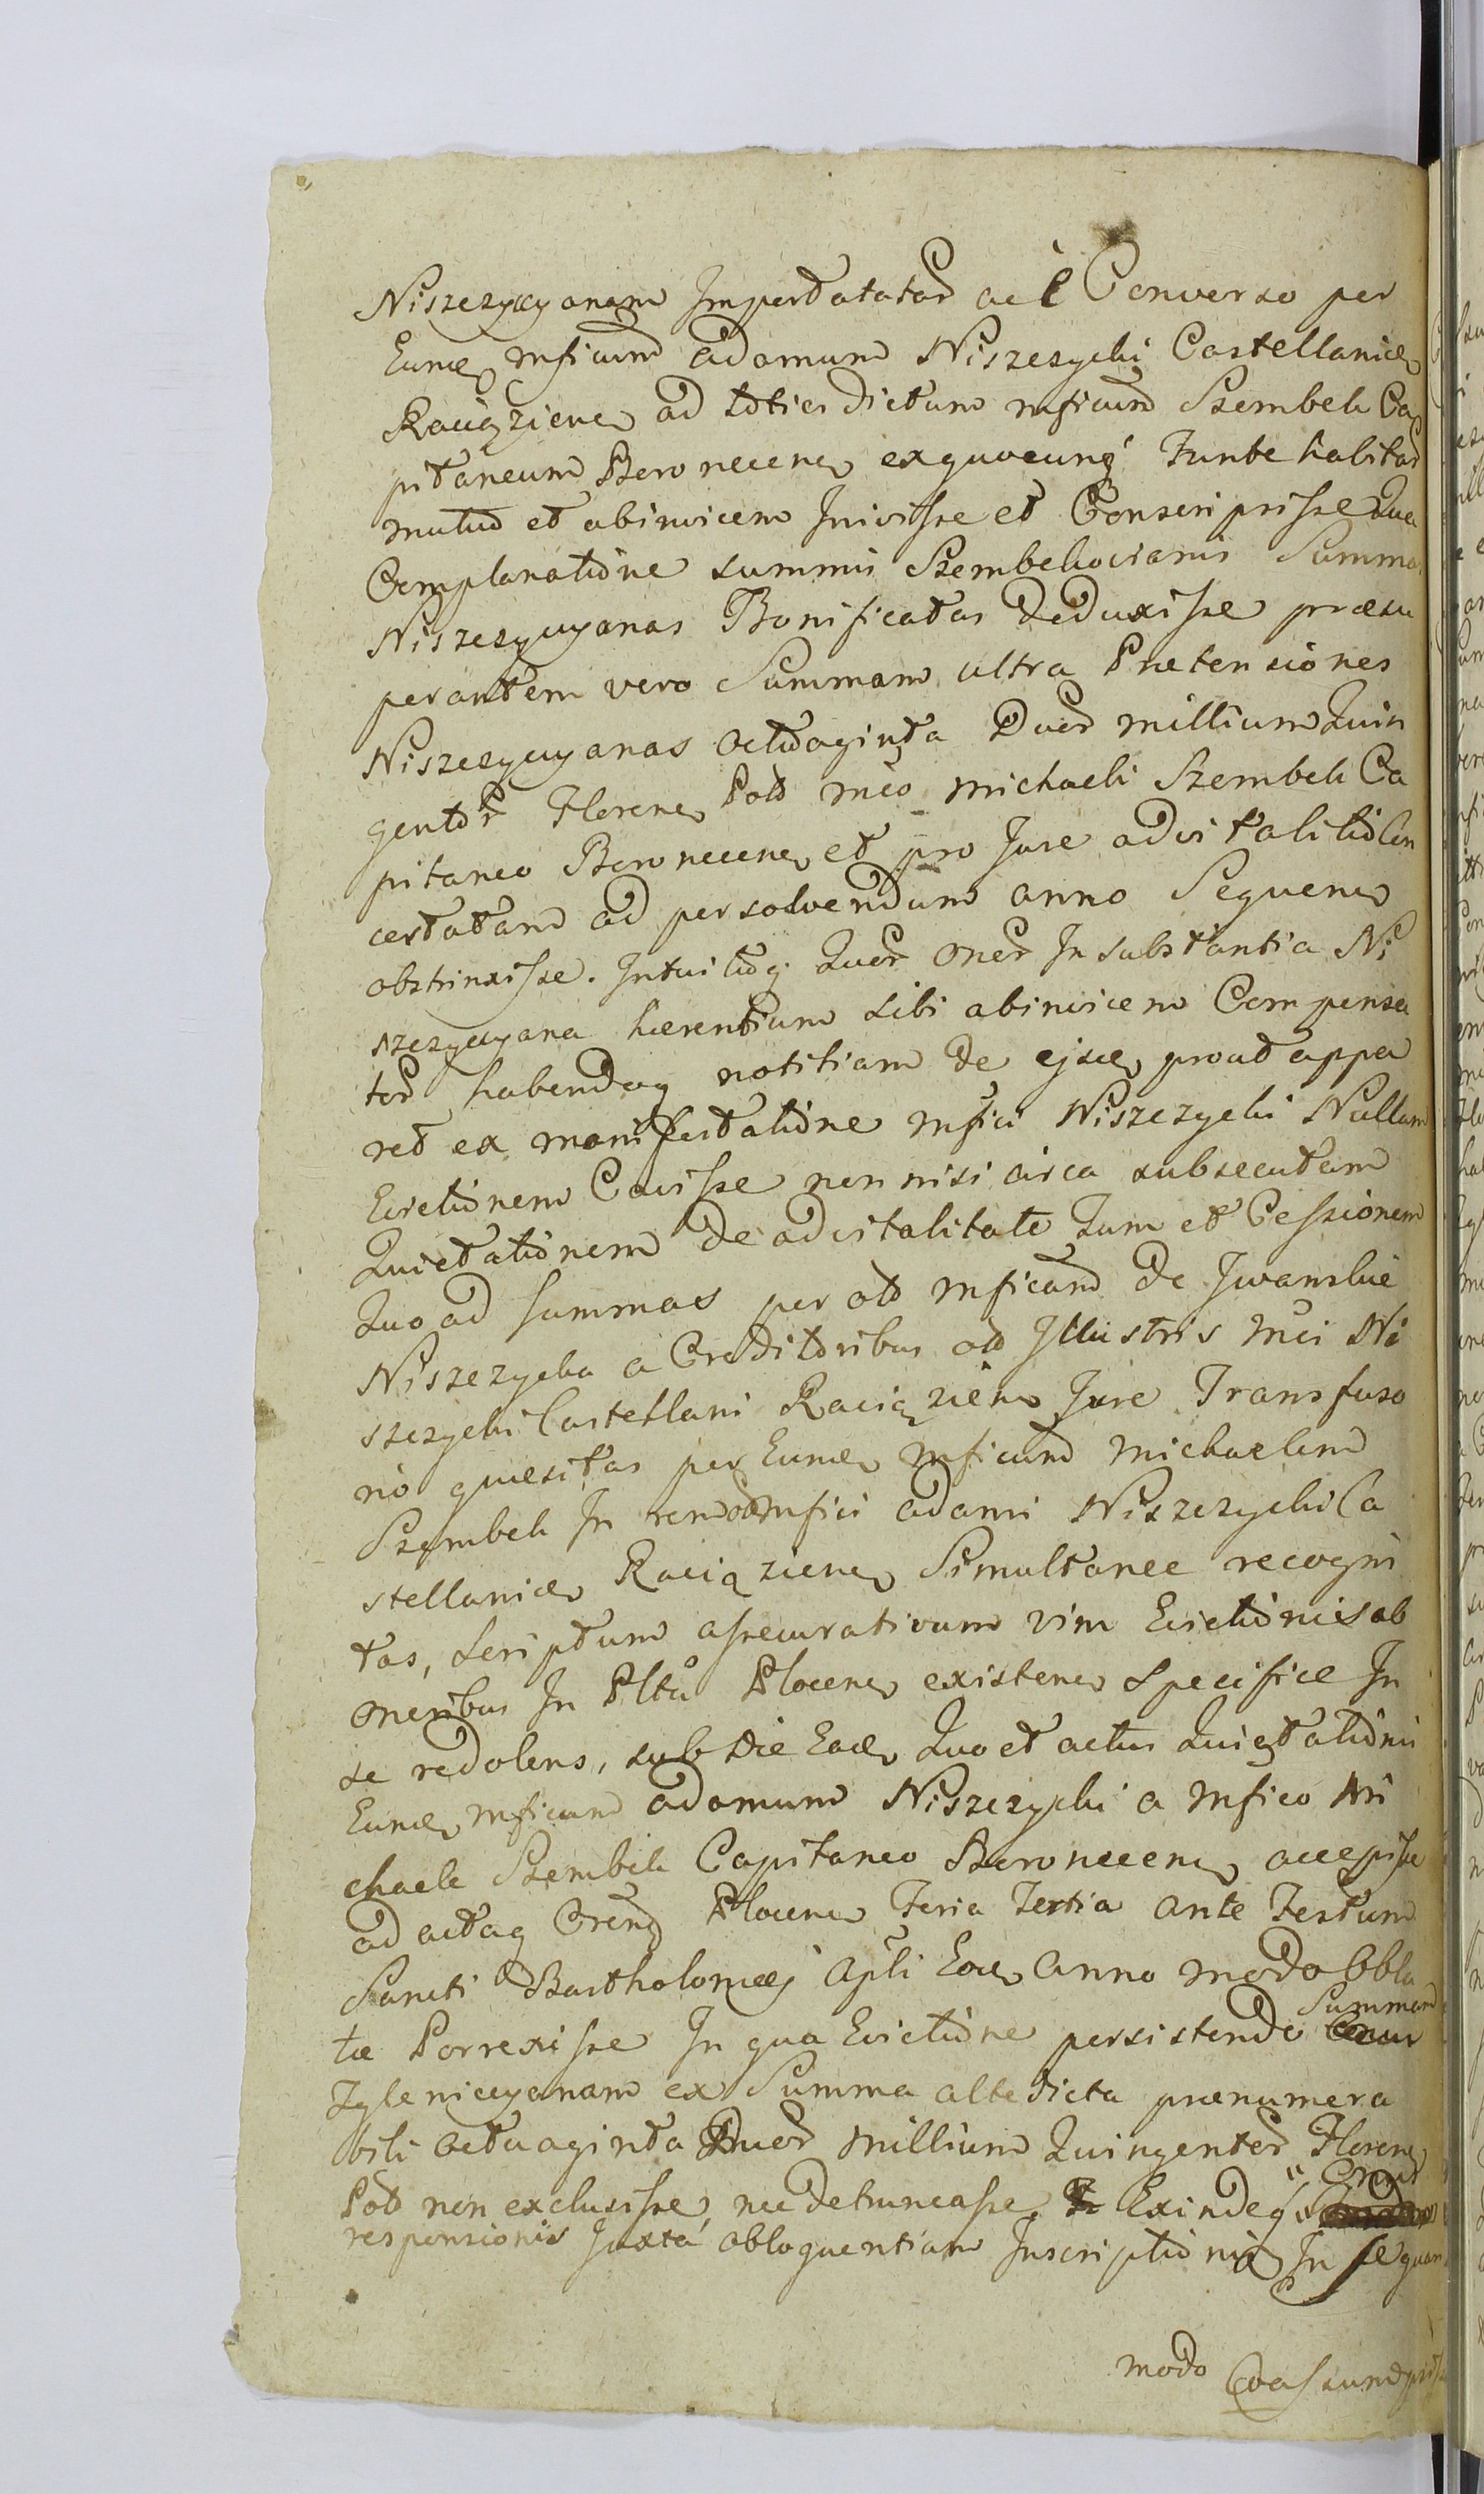 Niszczycyanam Impertatatar ac è Converso per
Eund mficum Adamum Niszczycki Castellanicz
Raciązien ad toties dictum mficum Szembek Ca
pitaneum Boronecen exquocunq Funte habitas
mutuo et abinvicem Inivisse et Conscripsisse Qua
Complanatione summis Szembekovianis Summas
Niszczycyanas Bonificatas Deduxisse præsu
perantem vero Summam ultra Prætensiones
Niszczycyanas octuaginta Duor millium Quin
gentor Floren Pol mco Michaeli Szembek Ca
pitaneo Boronecen et pro Jure advitalitio Con
certatam ad persolvendum anno Sequen
obstrinxisse. Intuituq Quor Oner In substantia Ni
szczycyana hærentium sibi abinvicem Compensa
tor habendaq notitiam de ejsce prout appa
ret ex manifestatione mfici Niszczycki Nullam
Evictionem Cavisse non nisi circa subsecutam
Quietationem De advitalitate Tum et Cessionem
Quo ad summas per ol mficam De Iwanskie
Niszczycka a Creditoribus ol Illustris mci Ni
szczycki Castellani Raciązien Jure Transfuso
rio quæsitas per Eund mficum Michaelem
Szembek In rem mfici Adami Niszczycki Ca
stellanicz Raciązien Simultanee recogni
tas, scriptum assecurativum vim Evictionis ab
oneribus In Pltu Plocen existen specifice In
se redolens, sub die Ead Quo et actus Quietationis
Eund mficum Adamum Niszczycki a mfico Mi
chaele Szembek Capitaneo Boronecen accepisse
ad actaq Crens Plocen Feria Tertia ante Festum
Sancti Bartholomæi Apli Eod Anno modo Obla
tæ Porrexisse In qua Evictione persistendo Summam
Zgleniccyanam ex Summa alte dicta prænumera
bili Octuaginta Duor millium Quingentor Floren
Pol non exclusisse, nec detruncasse, Exindeq
responsionis Juxta obloquentiam Inscriptionis In se quam
modo